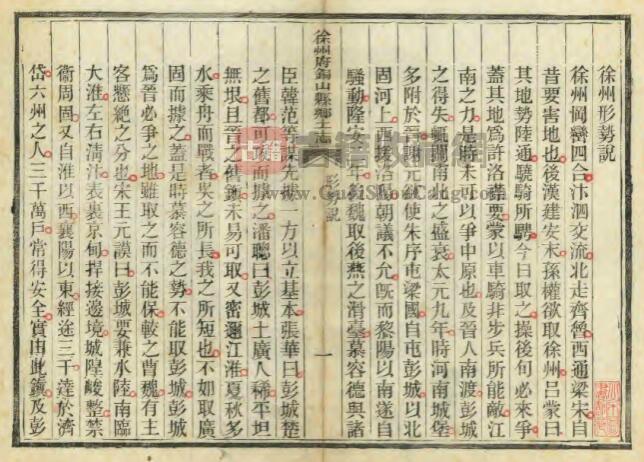 徐州形勢說
徐州岡巒四合汴泗交流北走齊魯西通梁宋自
昔要害地也後漢建安末孫權欲取徐州呂蒙曰
其地勢陸通驍騎所騁今日取之操後旬必來爭
蓋其地爲許洛藩要蒙以車騎非步兵所能敵江
南之力是時未可以爭中原也及晉人南渡彭城
之得失輒關南北之盛衰太元九年時河南城堡
多附於晉謝元欲使朱序屯梁國自屯彭城以北
固河上西援洛陽朝議不允旣而黎陽以南遂自
騷動隆安 年 魏取後燕之滑臺慕容德與諸
徐州府銅山縣鄉土 形勢說
一
臣韓范等謀先據一方以立基本張華曰彭城楚
之舊都可攻而據之潘聰曰彭城土廣人稀平坦
無垠且晉之 鎮未易可取又密邇江淮夏秋多
水乘舟而戰者吳之所長我之所短也不如取廣
固而據之蓋是時慕容德之勢不能取彭城彭城
爲晉必爭之地雖取之而不能保較之曹魏有主
客懸絶之分也宋王元謨曰彭城要兼水陸南臨
大淮左右清汴表裏京甸捍接邊境城隍峻整禁
衞周固又自淮以西襄陽以東經途三千達於濟
岱六州之人三千萬戶常得安全實由此鎮及彭
古籍收藏网
www.GuJiShouCang.com